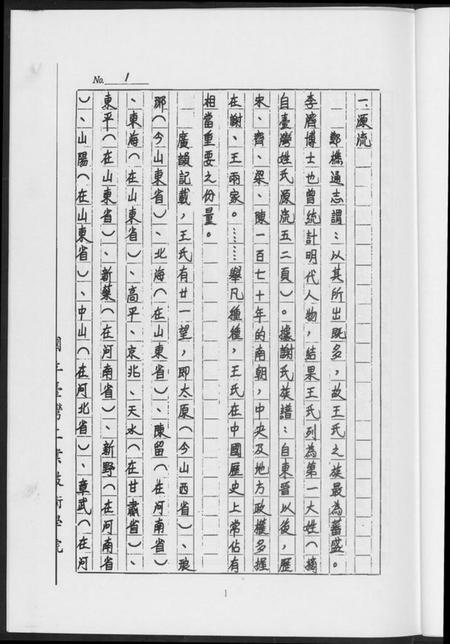 No. 1
一、源流
鄭樵通志謂:以其所出既多,故王氏之族最為蕃盛。
李濟博士也曾統計明代人物,結果王氏列為第一大姓(摘
自臺灣姓氏源流五二頁)。據謝氏族譜:自東晉以後,歷
宋、齊、梁、陳一百七十年的南朝,中央及地方政權多握
在謝、王兩家。……舉凡種種,王氏在中國歷史上常佔有
相當重要之份量。
廣韻記載,王氏有廿一望,即太原(今山西省)、琅
邪(今山東省)、北海(在山東省)、陳留(在河南省)
、東海(在山東省)、高平、京兆、天水(在甘肅省)、
東平(在山東省)、新蔡(在河南省)、新野(在河南省
)、山陽(在山東省)、中山(在河北省)、章武(在河
國立臺灣工業技術學院
1